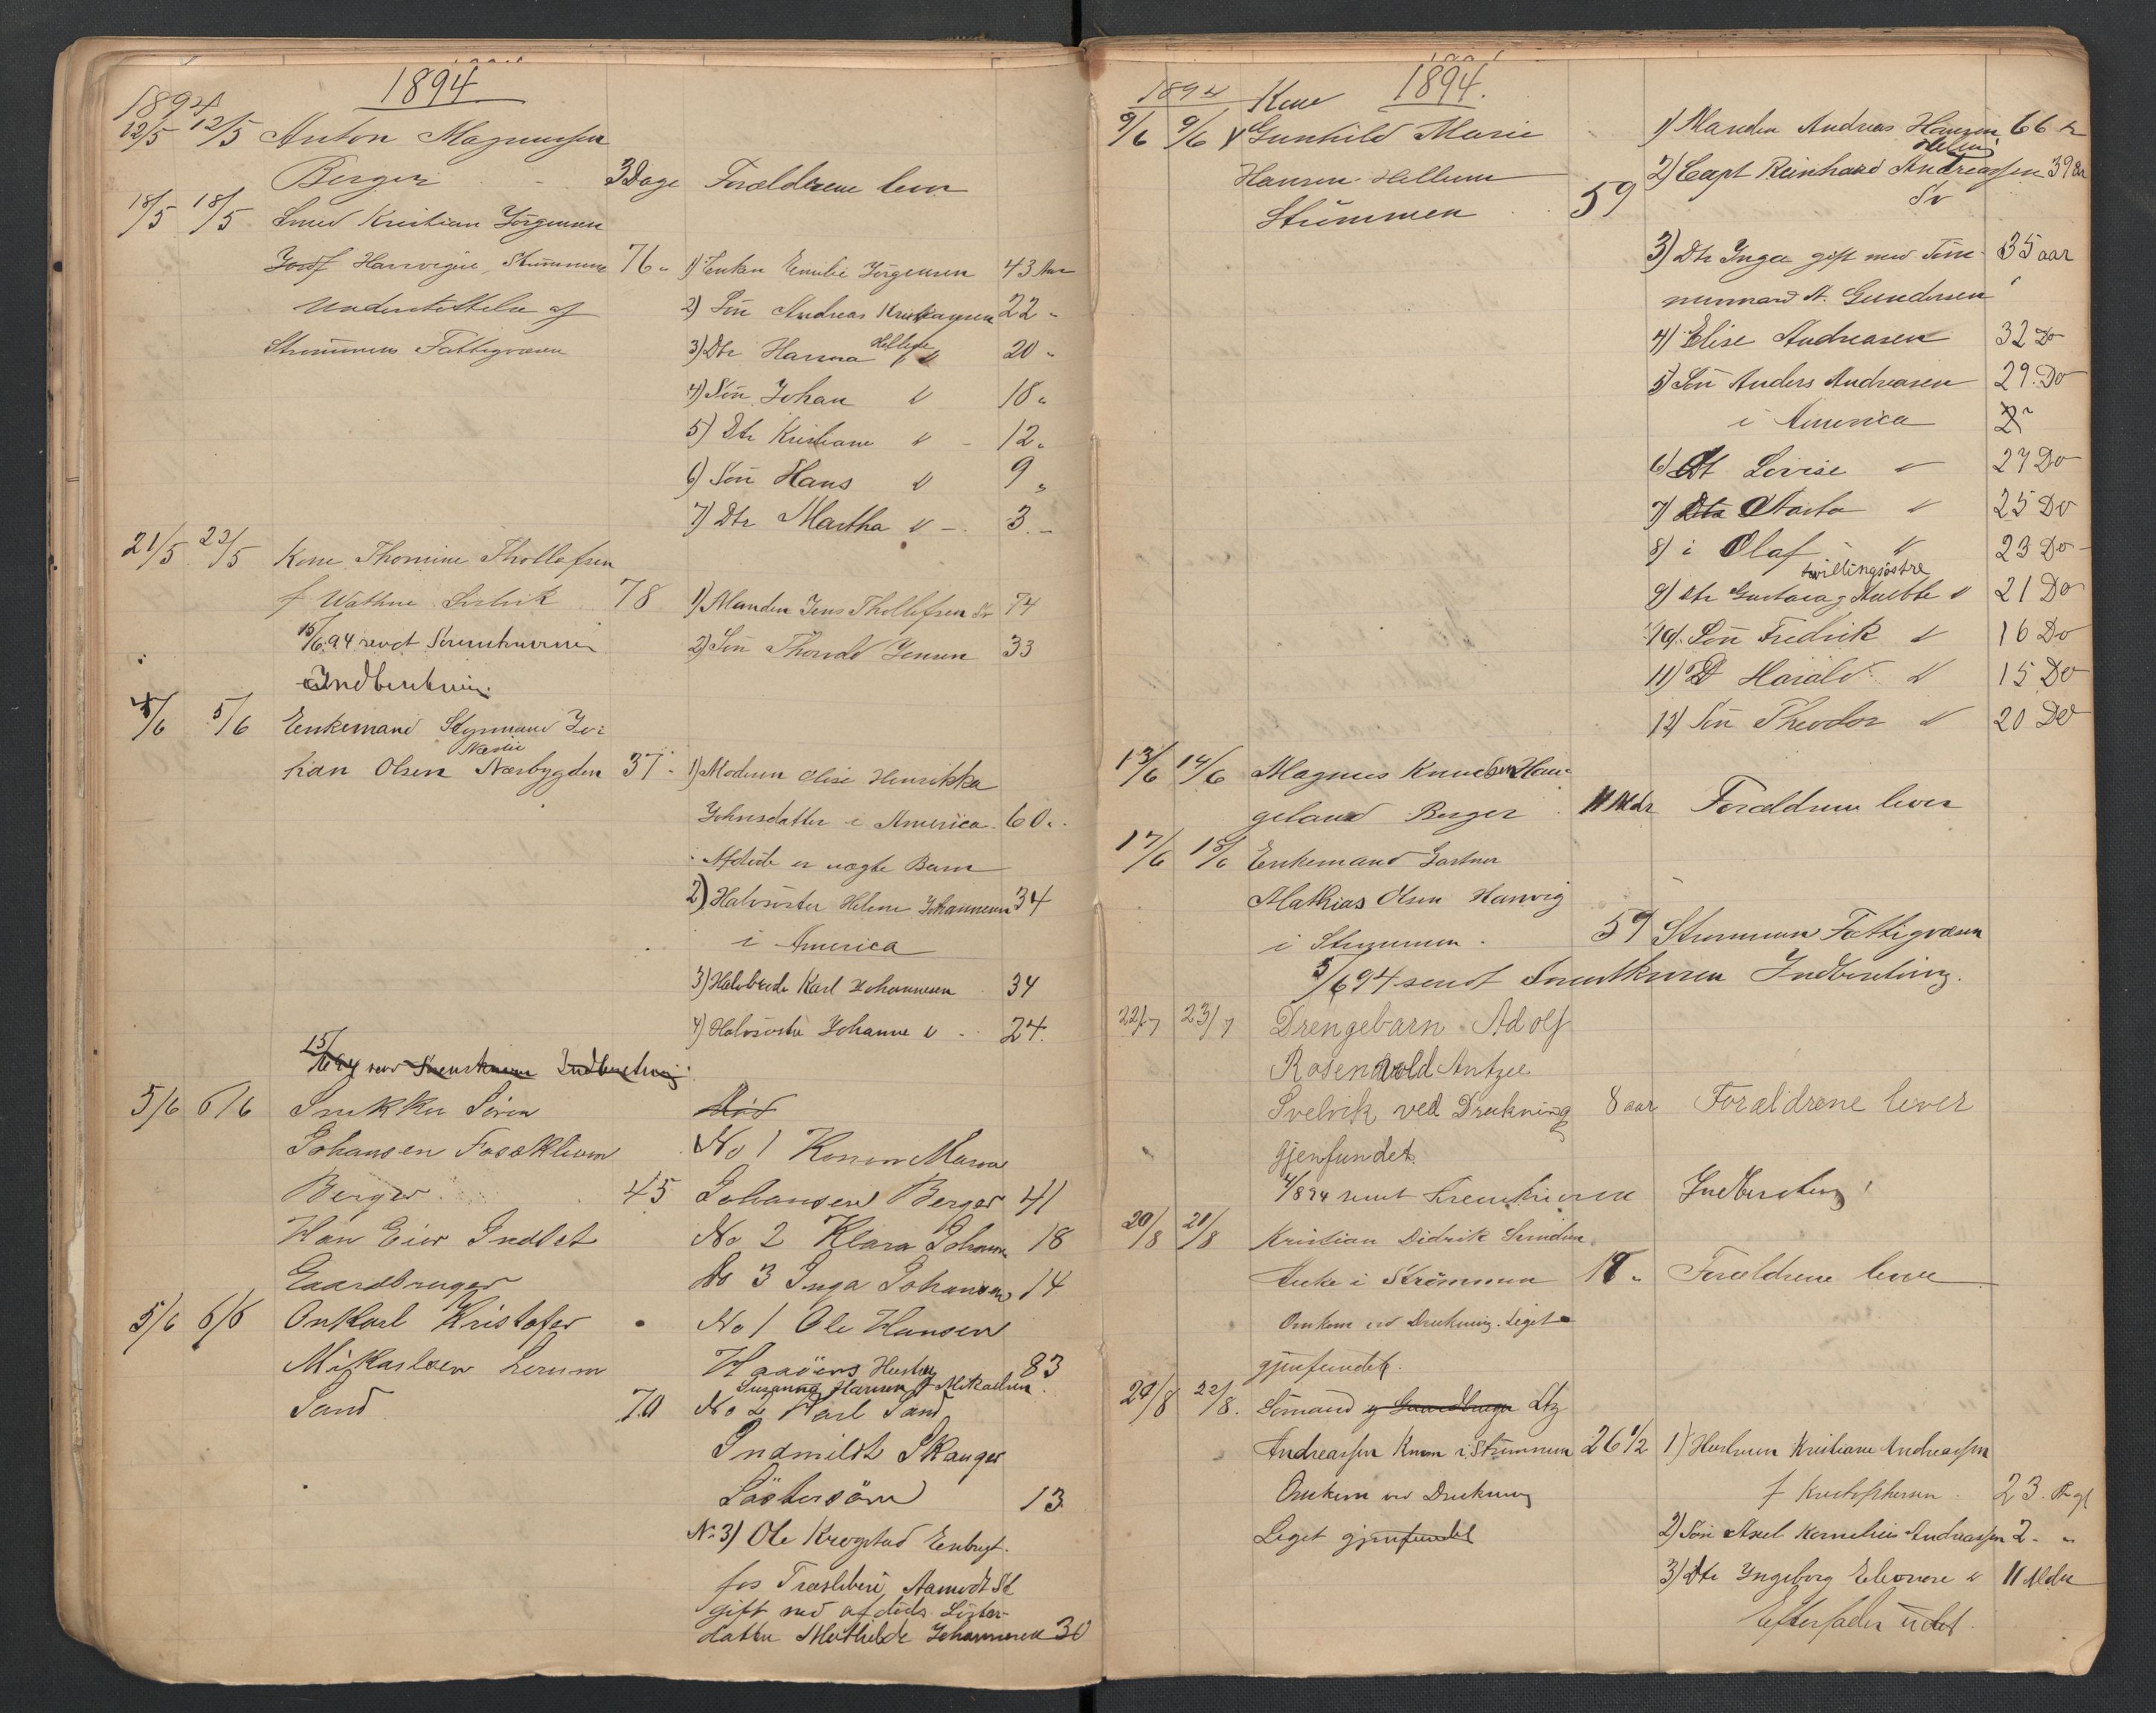 1894
1894
12/5 12/5 Anton Magnussen
Berger 3 Dage Forældrene lever
18/5 18/5 Smed Kristian Jörgensen
Harvigen, Strømmen 76 " 1) Enken Emilie Jörgensen 43 Aar
Understöttelse af 2) Sön Andreas Kristiansen 22 "
Strømmens Fattigvæsen 3) Dtr Hanna " 20 "
4) Sön Johan " 18 "
5) Dtr Kristiane " - 12 "
6) Sön Hans " 9 "
7) Dtr Martha " - 3 -
21/5 23/5 Kone Thomine Thollefsen
f Wathne Svelvik 78 1) Manden Jens Thollefsen Sr 74
15/6 94 sendt Skremskriveren 2) Sön Thorvald Jensen 33
Indberetning.
4/6 5/6 Enkemand Styrmand Jo-
han Olsen Næsbygden 37 - 1) Moderen Elise Henrikka
Johnsdatter i America 60 "
Afdöde er uægte Barn
2) Halvsöster Helene Johannesen 34
i America
3) Halvbroder Karl Johannesen 34
4) Halvsöster Johanne " 24
15/6 94 send Skremskriveren Indberetning
5/6 6/6 Snekker Sören
Johansen Fosseklium No 1 Konen Maren
Berger 45 Johansen Berger 41
Han Eier Indlöst No 2 Klara Johansen 18
Gaardbruger No 3 Inga Johansen 14
5/6 6/6 Karl Kristofer No 1 Ole Hansen
Mikkaelsen Lerum Haaöens Hustru 83
Susanne Hansen f Mikaelsen
Sand 70 No 2 Karl Sand
Indmildt Skauger
Söstersön 13
No 3) Ole Krogstad Enbugt.
fos Træsliberi, Aamodt St
gift med afdöde Söster-
datter Mathilde Johannesen 30
1894 Kone 1894.
9/6 9/6 Gunhild Marie 1) Manden Andreas Hansen 66 Aar
Hellum
Hansen Hellum 2) Capt Reinhard Andreassen 39 aar
Strömmen 59 Sv
3) Dtr Inga gift med Töm- 35 aar
mermand A. Gundersen
4) Elise Andreasen 32 Do
5) Sön Anders Andreasen 29. Do
i America
6) Dt Lovise " 27 Do
7) Dtr Aasta " 25 Do
8) i Olaf " 23 Do -
tvillingsöstre
9) Dtr Gustava g Hulbte " 21 Do
10) Sön Fredrik " 16 Do
11) D Harald " 15 Do
12) Sön Theodor " 20 Do
13/6 14/6 Magnus Knudsen Hau-
geland Berger 11 Mdr Forældrene lever
17/6 18/6 Enkemand Gartner
Mathias Olsen Harvig
i Strømmen 59 Strømmen Fattigvæsen
5/6 94 sendt Skremskriveren Indberetning.
22/7 23/7 Drengebarn Adolf
Rosenvold Antzee
Svelvik ved Drukning 8 aar Forældrene lever
gjenfundet
4/8 94 sendt Skremskriveren Indberetning
20/8 21/8 Kristian Didrik
i Strømmen 18 " Forældrene lever
Omkom ved Drukning. Liget
gjenfundet.
20/8 22/8 Sömand og Gaardbruger
Andreassen i Strømmen 26 1/2 1) Hustruen Kristiane Andreassen
Omkom ved Drukning f Kristophersen 23
Liget gjenfundet 2) Sön Axel Kornelius Andreassen 2 - "
3) Dtr Ingeborg Eleonore " 11 Mdr
Efterlader Intet